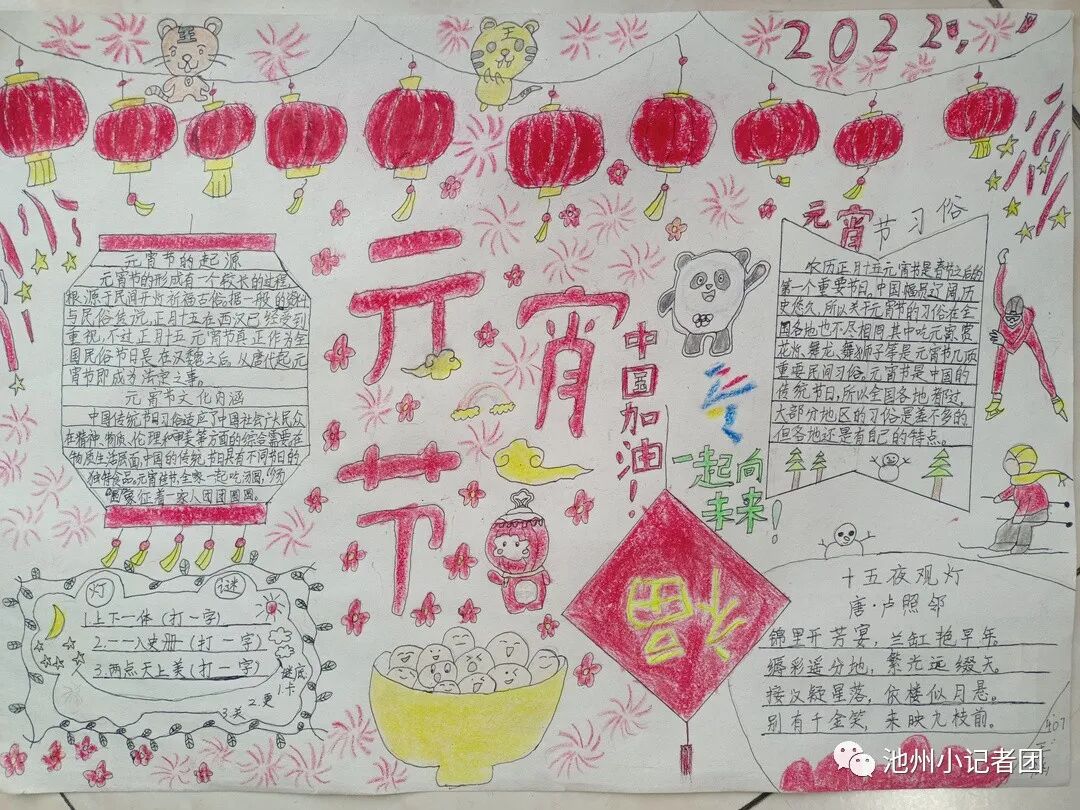 2022
元宵节
中国加油！
一起向
未来！
福
元宵节的起源
元宵节的形成有一个较长的过程,
根源于民间开灯祈福古俗。据一般的资料
与民俗传说,正月十五在西汉已经受到
重视,不过正月十五元宵节真正作为全
国民俗节日是在汉魏之后。从唐代起,元
宵节即成为法定之事。
元宵节文化内涵
中国传统节日习俗适应了中国社会广大民众
在精神、物质、伦理和审美等方面的综合需要。在
物质生活层面,中国的传统节日具有不同节日的
独特食品。元宵佳节,全家一起吃汤圆,
象征着一家人团团圆圆。
元宵节习俗
农历正月十五元宵节是春节之后的
第一个重要节日。中国幅员辽阔历
史悠久,所以关于元宵节的习俗在全
国各地也不尽相同,其中吃元宵、赏
花灯、舞龙、舞狮子等是元宵节几项
重要民间习俗。元宵节是中国的
传统节日,所以全国各地都过,
大部分地区的习俗是差不多的
但各地还是有自己的特点。
灯谜
1.上下一体(打一字)
2.一一入史册(打一字)
3.两点天上美(打一字)
谜底
1.卡
2.更
3.关
十五夜观灯
唐·卢照邻
锦里开芳宴，兰缸艳早年。
缛彩遥分地，繁光远缀天。
接汉疑星落，依楼似月悬。
别有千金笑，来映九枝前。
407
池州小记者团